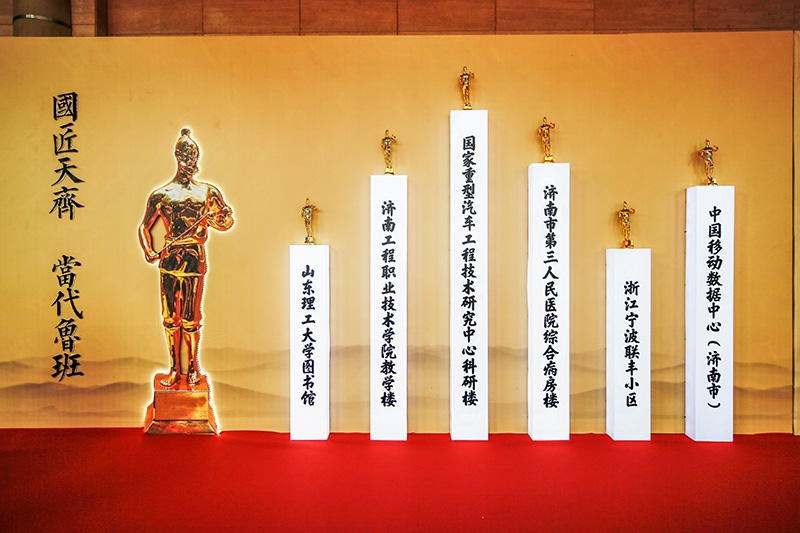 國匠天齊 當代魯班
山东理工大学图书馆
济南工程职业技术学院教学楼
国家重型汽车工程技术研究中心科研楼
济南市第三人民医院综合病房楼
浙江宁波联丰小区
中国移动数据中心(济南市)